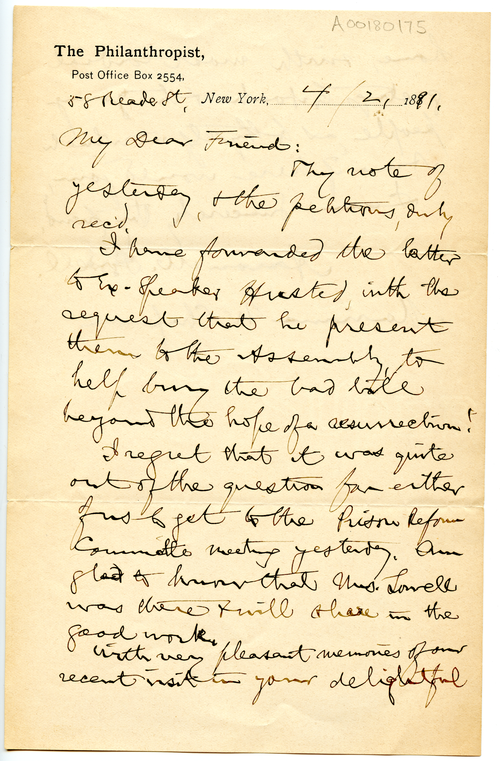 A00180175
The Philanthropist,
Post Office Box 2554,
58 Reade St, New York, 4/2, 1891.
My Dear Friend:
Thy note of
yesterday, & the petitions, duly
rec'd.
I have forwarded the latter
to Ex-Speaker Husted, with the
request that he present
them to the Assembly, to
help bury the bad bill
beyond the hope of a resurrection!
I regret that it was quite
out of the question for either
of us to get to the Prison Reform
Committe meeting yesterday. Am
glad to know that Mrs. Lowell
was there & will share in the
good work.
With very pleasant memories of our
recent visit in your delightful